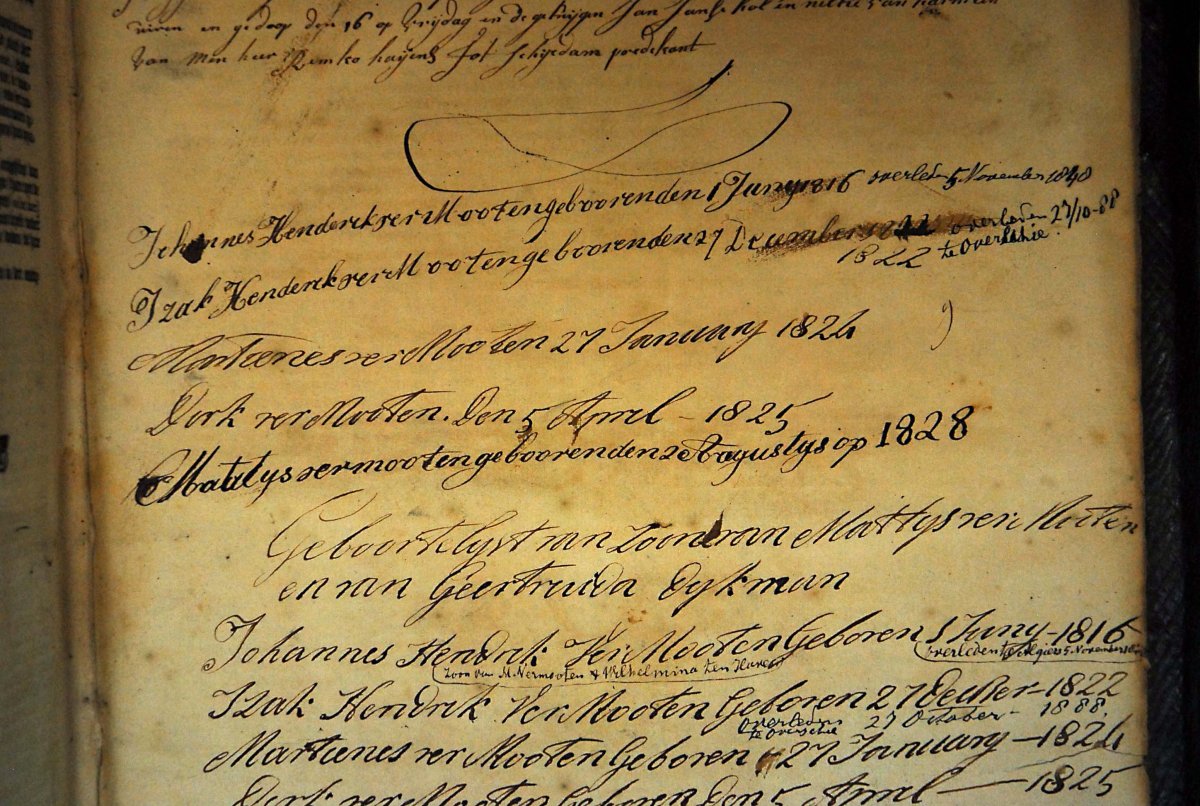 en gedoop den 16 op vrijdag en de getuijgen Jan Janse kol in neltie van
van mijn heer Remko haijens tot schijedam predekant
Johannes Henderck ver Mooten geboorenden 1 Juny 1816 overleden 5 November 1848
Izak Henderck ver Mooten geboorenden 27 December overleden 27/10-88
1822 te Overschie.
Martienes ver Mooten 27 January 1824
Derk ver Mooten. Den 5 April - 1825
Mattys vermooten geboorenden 2 Agustys op 1828
Geboortelyst van Zoone van Mattys ver Mooten
en van Geertruida Dykman
Johannes Hendrik Ver Mooten Geboren 1 Juny - 1816
zoon van M. Vermooten & Wilhelmina ten Haven overleden 5 November
Izak Hendrik Ver Mooten Geboren 27 Decber - 1822
overleden 27 October - 1888.
te Overschie
Martienes ver Mooten Geboren - 27 January - 1824
Derk ver Mooten Geboren Den 5 April - 1825